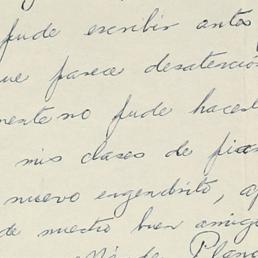 pude escribir antes
que parece desatención
mente no pude hacerl
mis clases de pian
nuevo engendrito, a
de nuestro buen amigo
de Plan